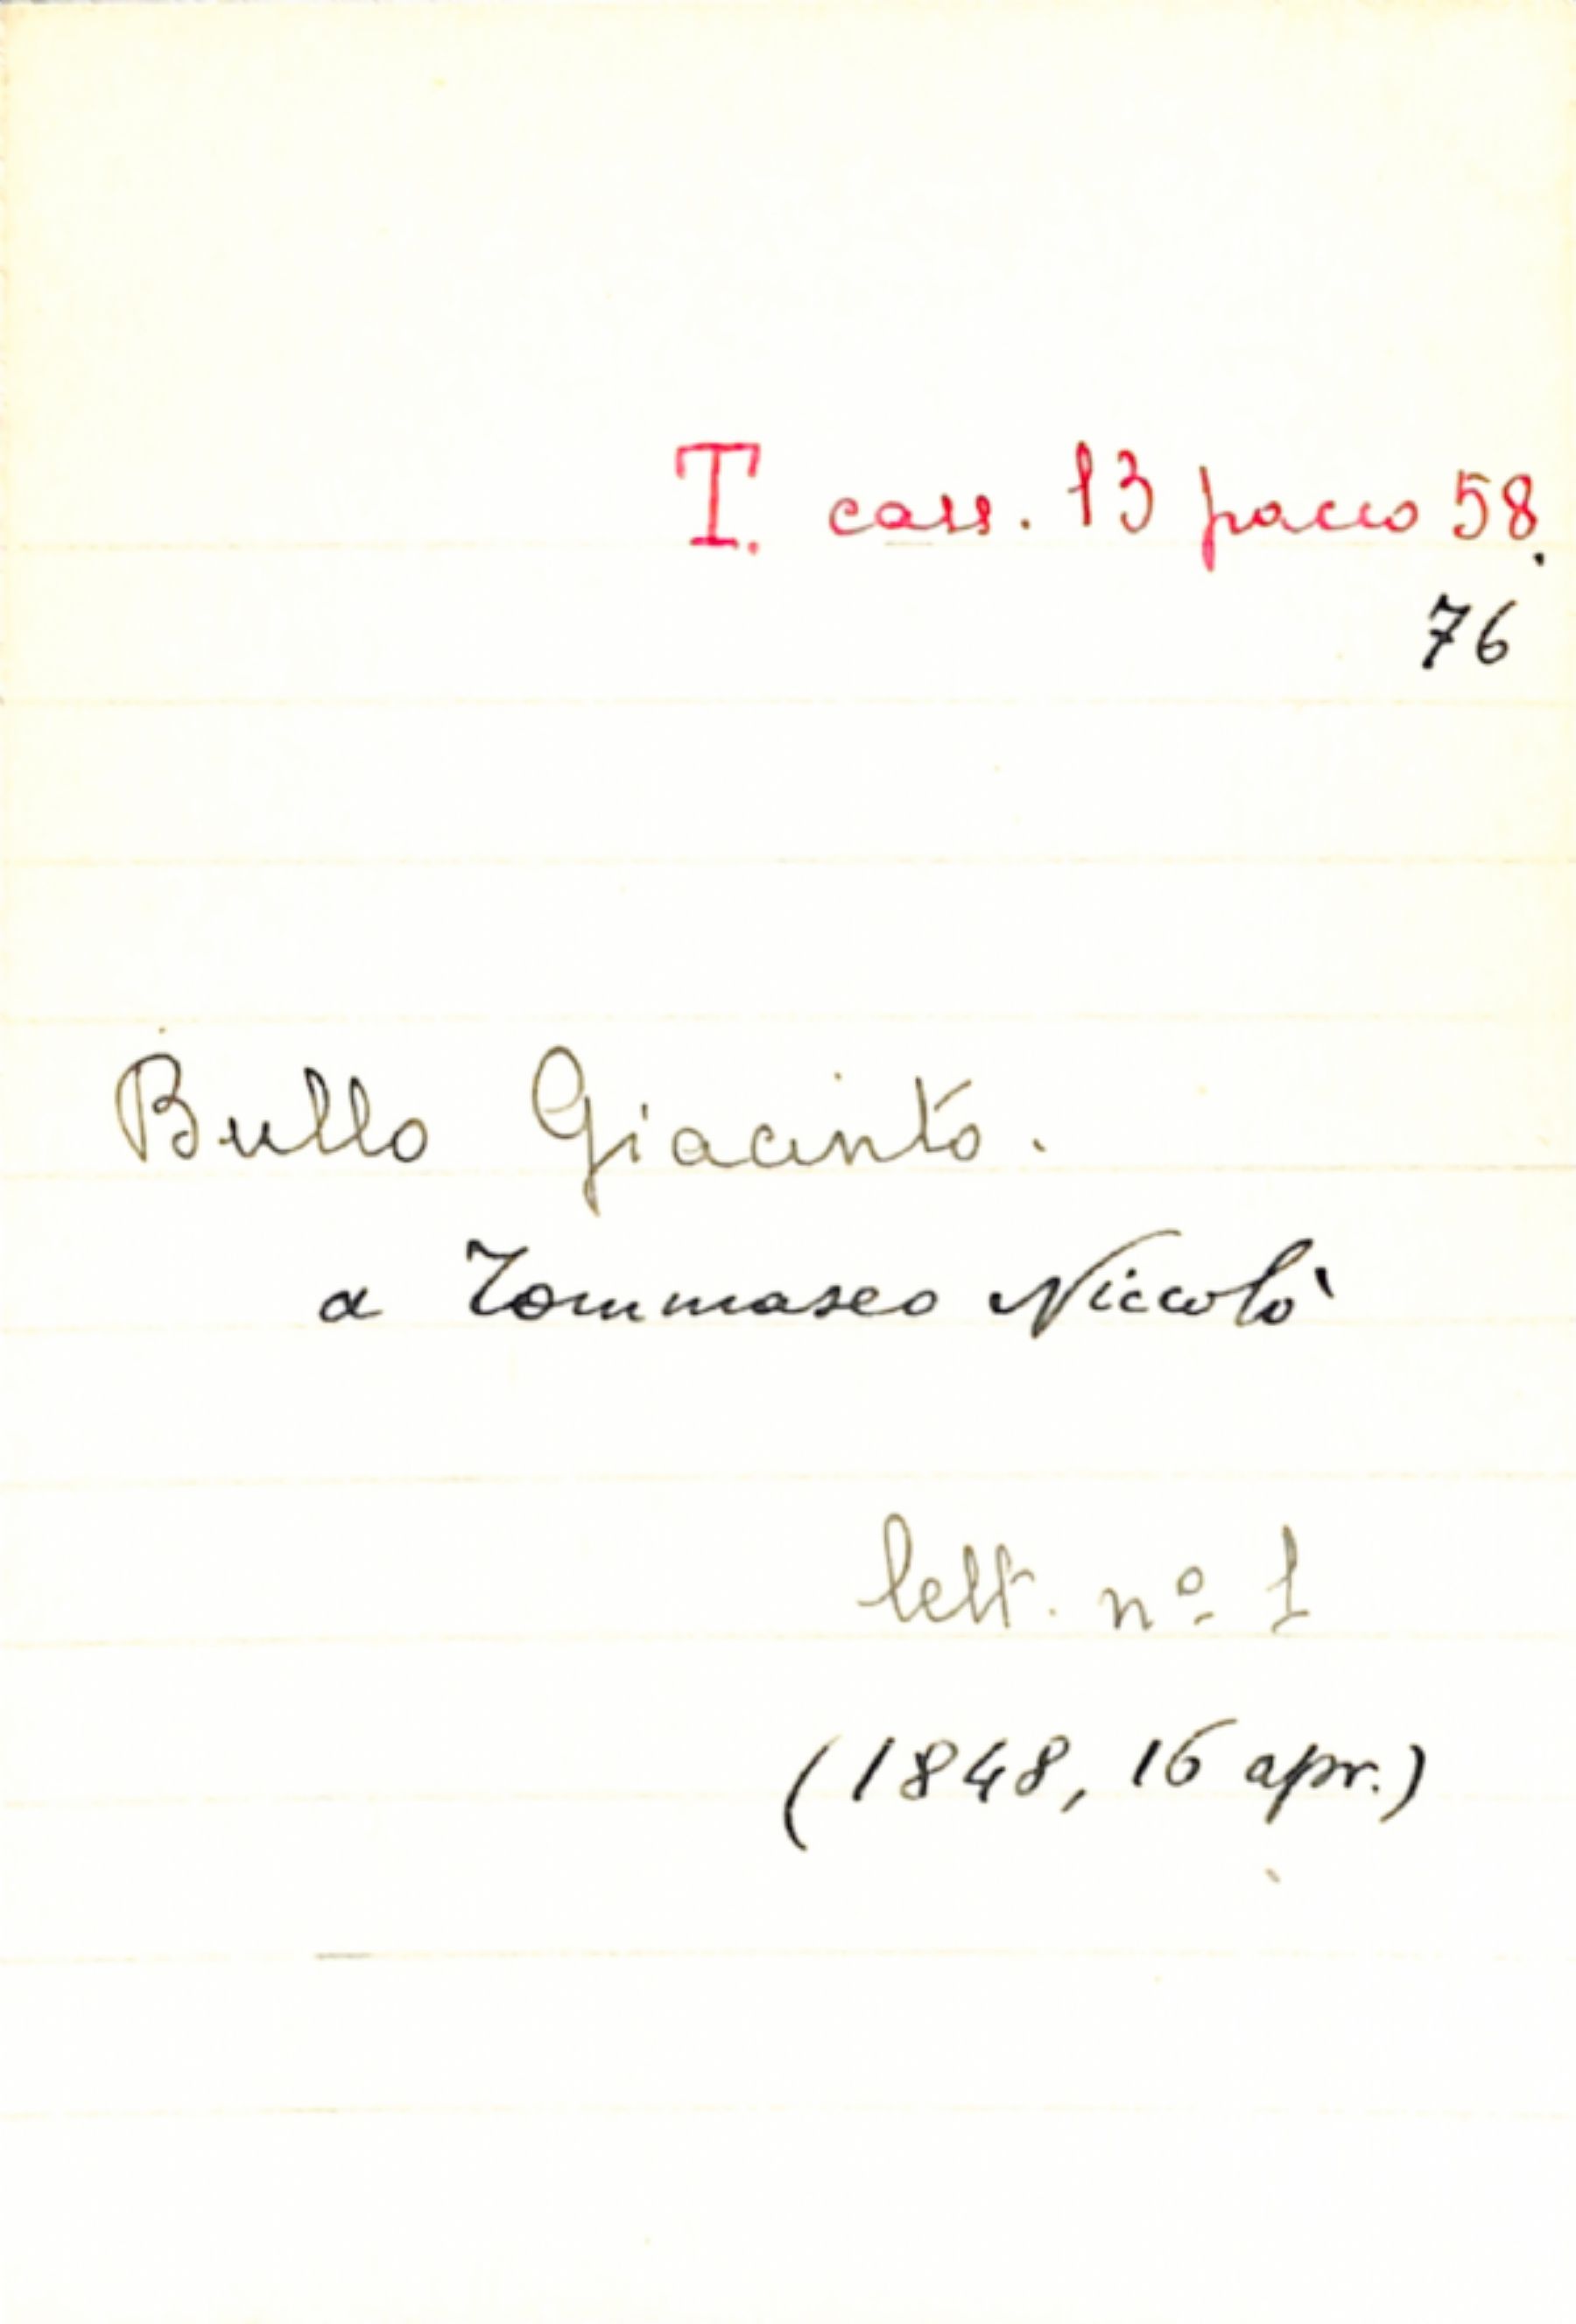 T. cass. 13 pacco 58.
76
Bullo Giacinto.
a Tommaseo Niccolò
lett. nº 1
(1848, 16 apr.)